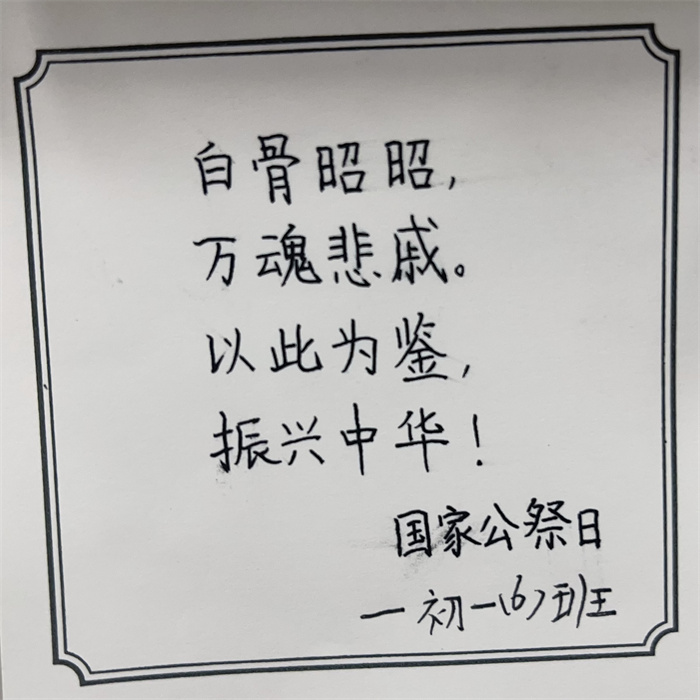 白骨昭昭,
万魂悲戚。
以此为鉴,
振兴中华!
国家公祭日
一初一(6)班